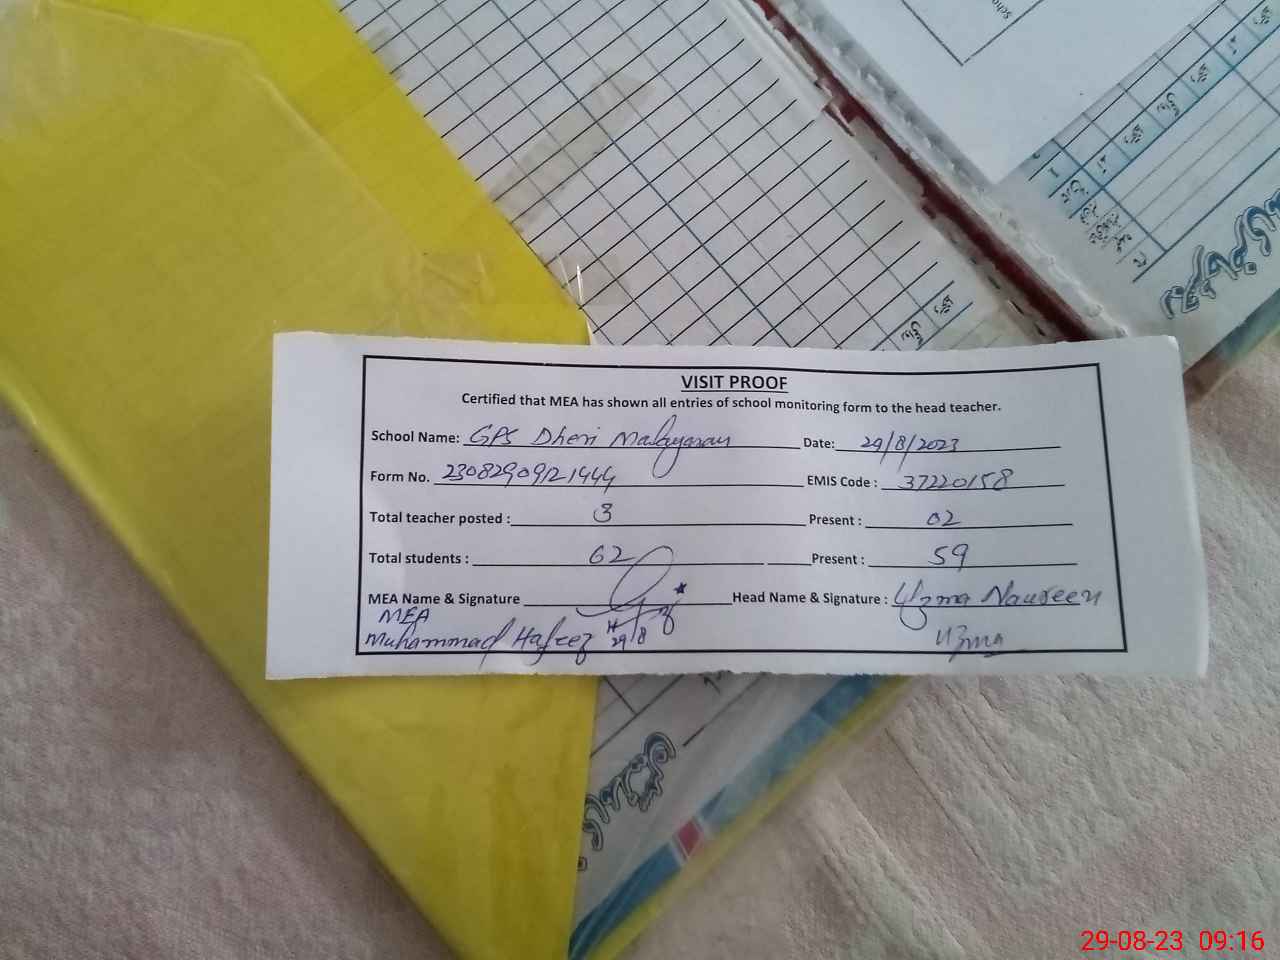 VISIT PROOF
Certified that MEA has shown all entries of school monitoring form to the head teacher.
School Name: GPS Dheri Date: 29/8/2023
Form No. 23082909121444 EMIS Code : 37220158
Total teacher posted : 3 Present : 02
Total students : 62 Present : 59
MEA Name & Signature Head Name & Signature : Uzma Naureen
MEA
Muhammad Hafeez 29/8 Uzma
29-08-23 09:16